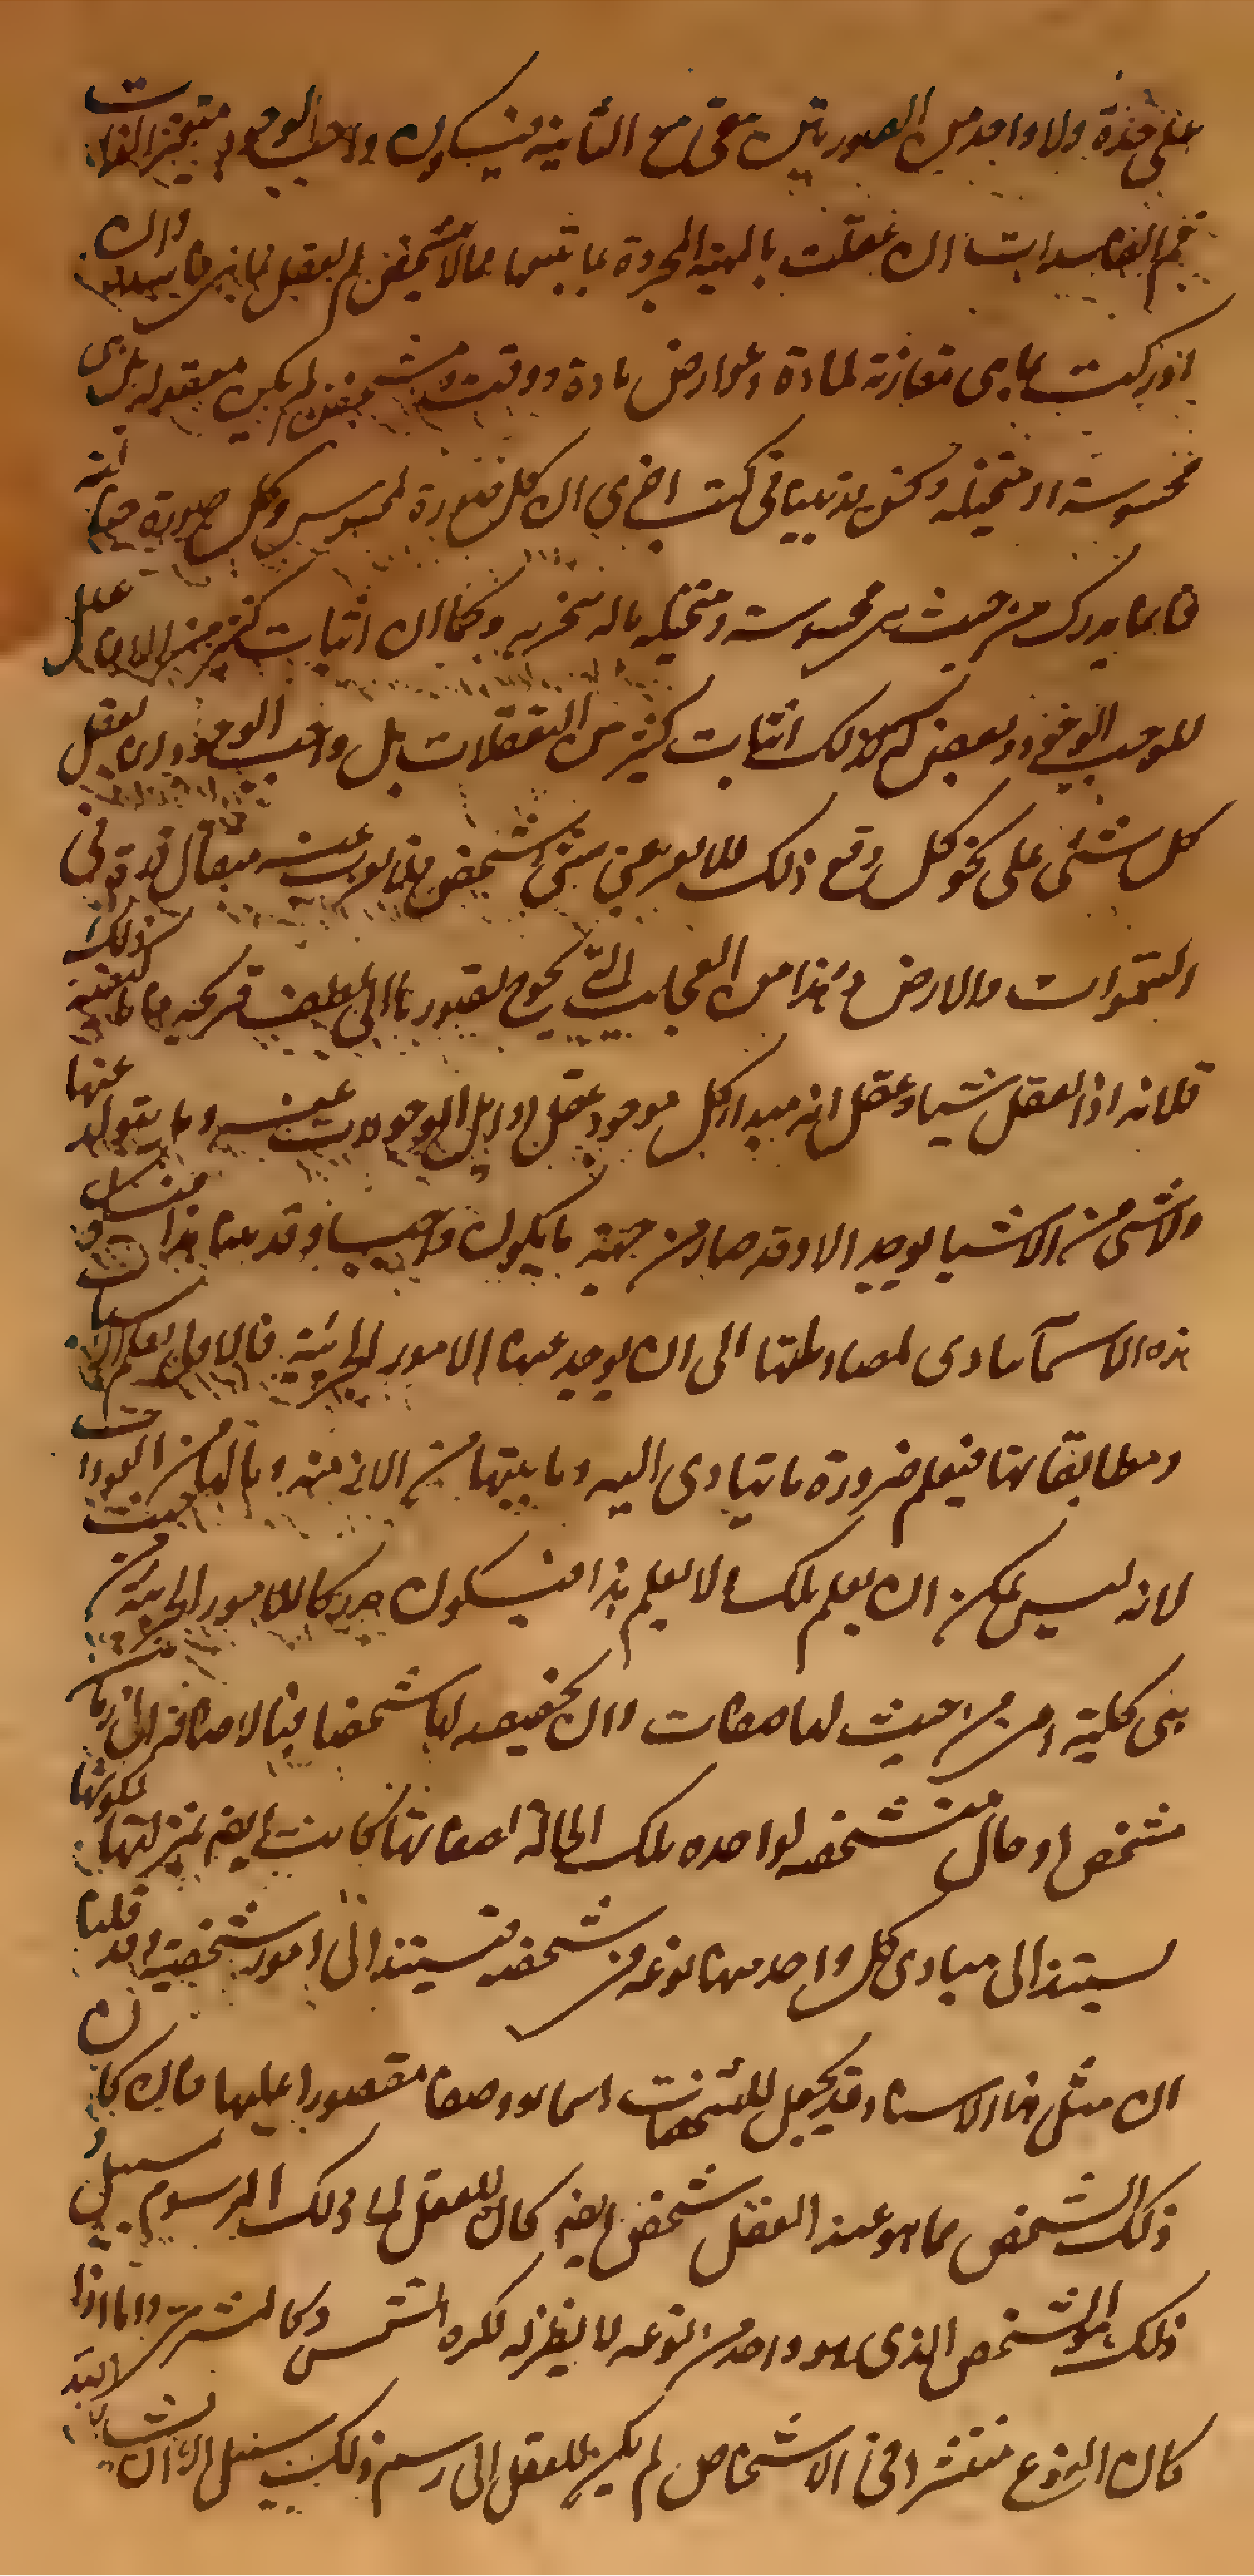 على حدة ولا واحد من الصورتين يبقى مع الثانية فيكون واجب الوجود متغير الذات
ثم الفاسدات ان عقلت بالمهية المجردة بما يتبعها مما لا يتشخص لم يعقل بما هي فاسدة وان
ادركت بما هي مقارنة لمادة وعوارض مادة ووقت وتشخص لم يكن معقولة بل هي
محسوسة او متخيلة ونحن قد بينا في كتب اخرى ان كل صورة لمحسوس وكل صورة خيالية
فانما يدرك من حيث هي محسوسة او متخيلة بالة متجزية وكما ان اثبات كثير من الافاعيل
للواجب الوجود نقص له كذلك اثبات كثير من التعقلات بل واجب الوجود انما يعقل
كل شئ على نحو كلي ومع ذلك فلا يعزب عنه شئ شخصي فلا يعزب عنه مثقال ذرة في
السموات والارض وهذا من العجايب التي يحوج تصورها الى لطف قريحة واما كيفية ذلك
فلانه اذا عقل ذاته وعقل انه مبدا كل موجود عقل اوايل الموجودات عنه وما يتولد عنها
ولا شئ من الاشيا يوجد الا وقد صار من جهة ما يكون واجبا بسببه وقد بينا هذا فيكون
هذه الاسباب يتادى بمصادماتها الى ان يوجد عنها الامور الجزئية فالاول يعلم الاسباب
ومطابقاتها فيعلم ضرورة ما يتادى اليه وما بينها من الازمنة وما لها من العودات
لانه ليس يمكن ان يعلم تلك ولا يعلم هذا فيكون مدركا للامور الجزئية من حيث
هي كلية اعني من حيث لها صفات وان تخصصت بها شخصا فبالاضافة الى زمان
متشخص او حال متشخصة لو اخذت تلك الحالة بصفاتها كانت ايضا بمنزلتها لكونها
يستند الى مبادي كل واحد منها نوعه في شخصه فتستند الى امور شخصية وقد قلنا
ان مثل هذا الاستناد قد يجعل للشخصيات رسما ووصفا مقصورا عليها فان كان
ذلك الشخص مما هو عند العقل شخصي ايضا كان للعقل الى ذلك المرسوم سبيل
وذلك هو الشخص الذي هو واحد في نوعه لا نظير له ككرة الشمس وكالمشتري واما اذا
كان النوع منتشرا في الاشخاص لم يكن للعقل الى رسم ذلك سبيل الا ان يشار اليه